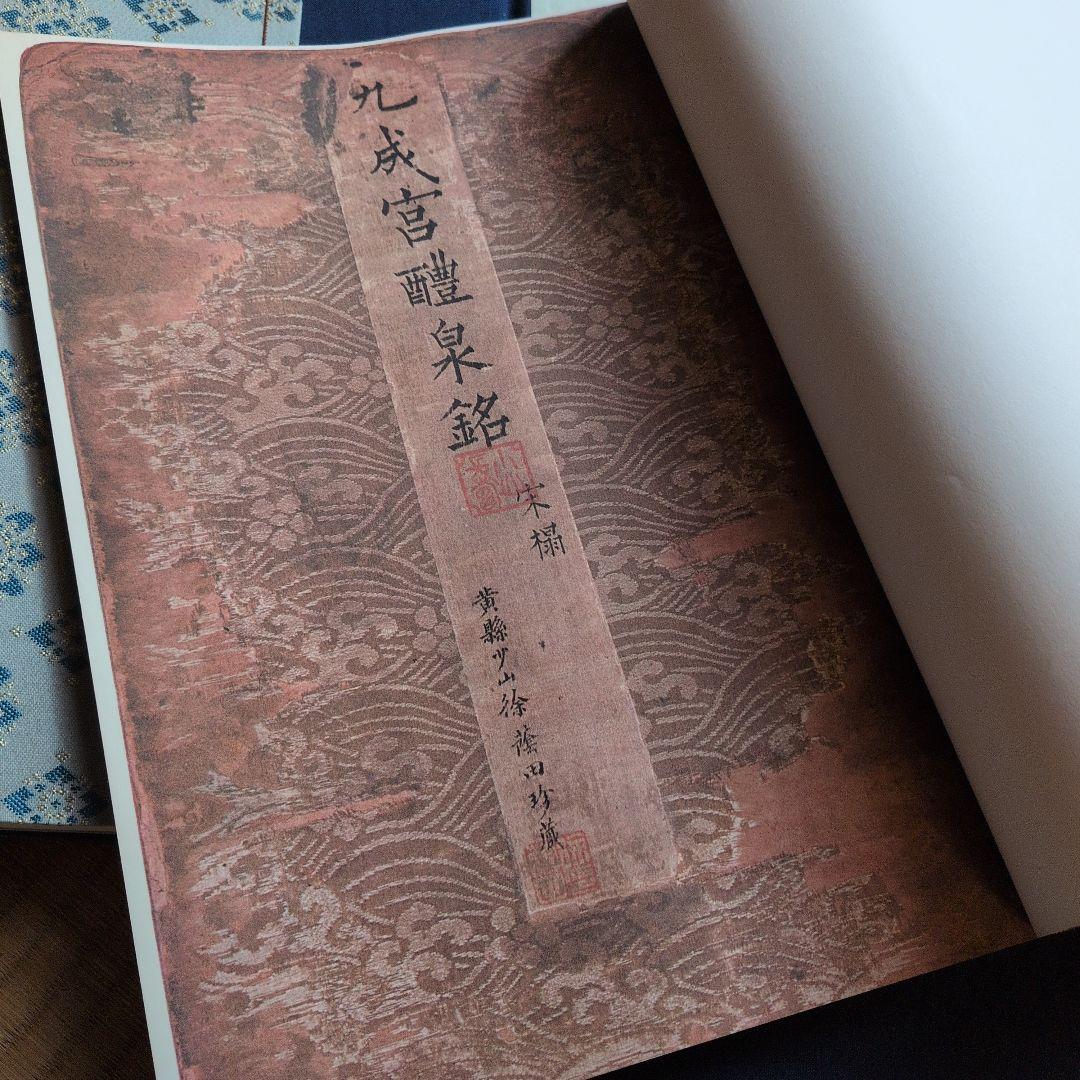 九成宮醴泉銘
宋榻
黃縣少山徐蔭田珍藏